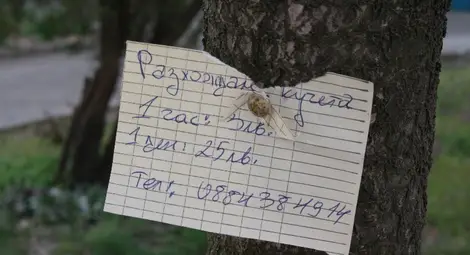 Разхождам кучета
1 час: 5лв.
1 ден: 25лв.
Тел. 0884384914